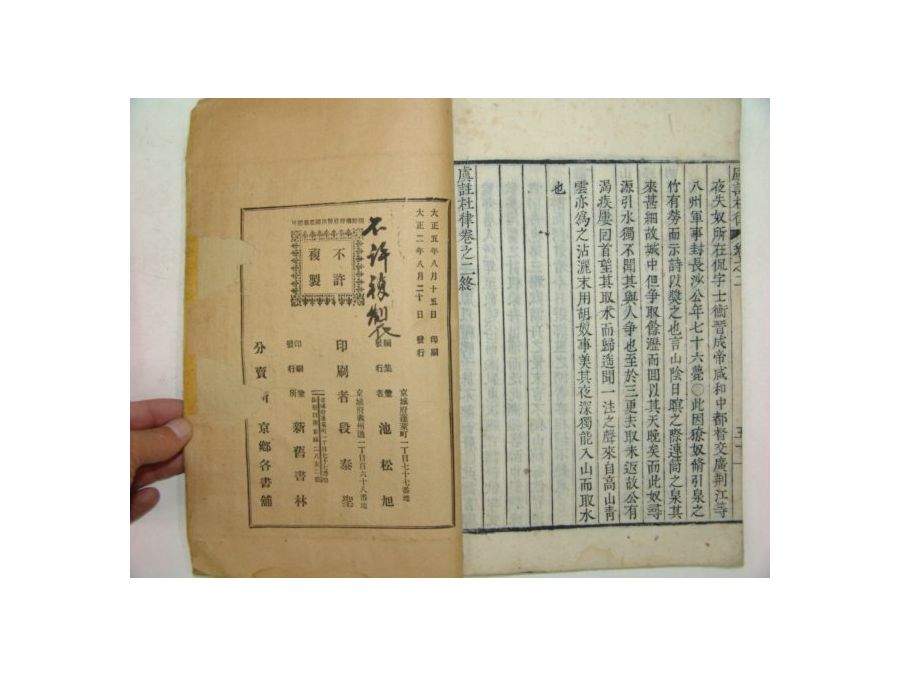 虞註杜律 卷之二
夜失奴所在侃字士衡晉成帝咸和中都督交廣荊江等
八州軍事封長沙公年七十六薨〇此因獠奴脩引泉之
竹有勞而示詩以奬之也言山陰日暝之際連筒之泉其
來甚細故城中但爭取餘瀝而囬以其天晚矣而此奴尋
源引水獨不聞其與人爭也至於三更去取未返故公有
渴疾屢回首望其取水而歸遥聞一注之聲來自高山靑
雲亦爲之沾灑末用胡奴事美其夜深獨能入山而取水
也
虞註杜律卷之二終
大正五年八月十五日 印刷
大正二年八月二十日 發行
不許複製
不許
複製
京城府蓬萊町一丁目七十七番地
編集兼發行者 池松旭
京城府義州通一丁目百六十八番地
印刷者 段泰聖
印刷兼發行所 新舊書林
分賣 京鄉各書舖